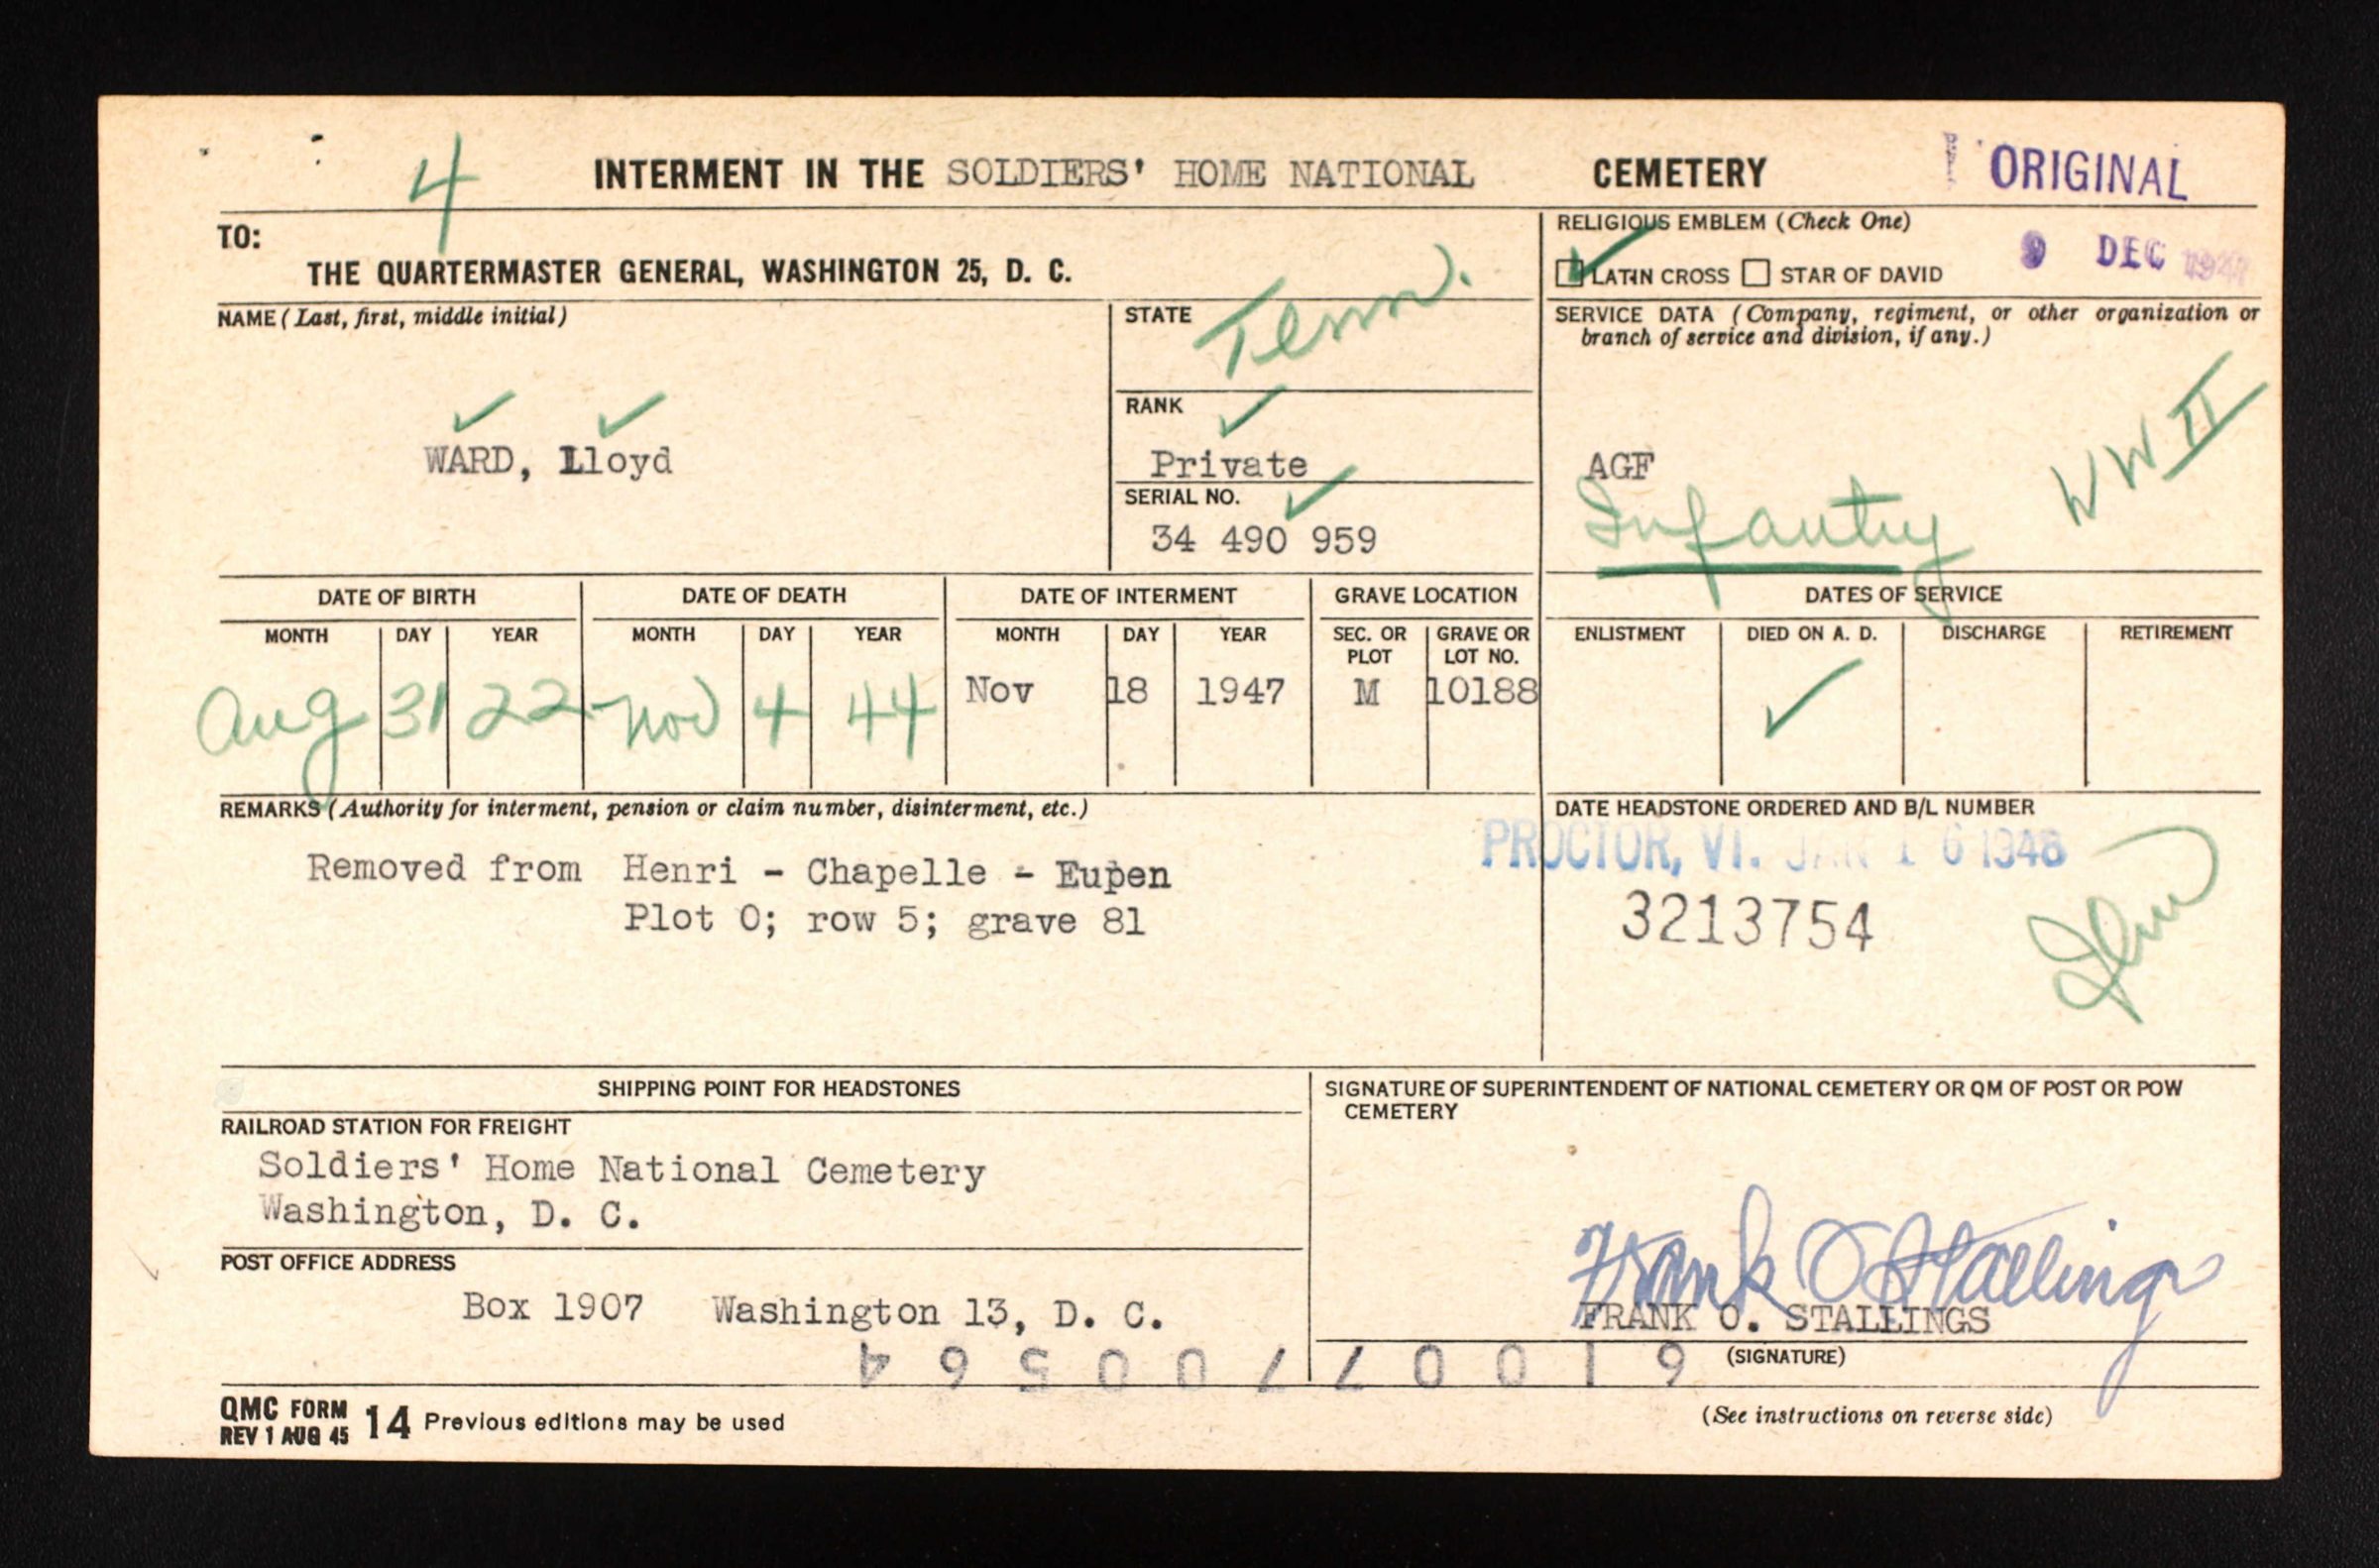 4 INTERMENT IN THE SOLDIERS' HOME NATIONAL CEMETERY ORIGINAL
TO:
THE QUARTERMASTER GENERAL, WASHINGTON 25, D. C.
RELIGIOUS EMBLEM (Check One)
LATIN CROSS STAR OF DAVID
9 DEC
NAME (Last, first, middle initial)
WARD, Lloyd
STATE
Tenn.
RANK
Private
SERIAL NO.
34 490 959
SERVICE DATA (Company, regiment, or other organization or
branch of service and division, if any.)
AGF
Infantry
WW II
DATE OF BIRTH DATE OF DEATH DATE OF INTERMENT GRAVE LOCATION DATES OF SERVICE
MONTH DAY YEAR MONTH DAY YEAR MONTH DAY YEAR SEC. OR PLOT GRAVE OR LOT NO. ENLISTMENT DIED ON A. D. DISCHARGE RETIREMENT
Aug 31 22 Nov 4 44 Nov 18 1947 M 10188
REMARKS (Authority for interment, pension or claim number, disinterment, etc.)
Removed from Henri - Chapelle - Eupen
Plot O; row 5; grave 81
DATE HEADSTONE ORDERED AND B/L NUMBER
PROCTOR, VT. JAN 16 1948
3213754
SHIPPING POINT FOR HEADSTONES
RAILROAD STATION FOR FREIGHT
Soldiers' Home National Cemetery
Washington, D. C.
POST OFFICE ADDRESS
Box 1907 Washington 13, D. C.
SIGNATURE OF SUPERINTENDENT OF NATIONAL CEMETERY OR QM OF POST OR POW
CEMETERY
Frank O Stallings
FRANK O. STALLINGS
(SIGNATURE)
61007700564
QMC FORM 14 Previous editions may be used
REV 1 AUG 45
(See instructions on reverse side)